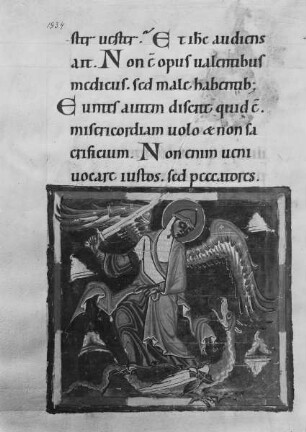 1834
ster uester. Et ihc audiens
ait. Non ē opus ualentibus
medicus. sed male habentib;
Euntes autem discite quid ē.
misericordiam uolo & non sa
crificium. Non enim ueni
uocare iustos. sed peccatores.